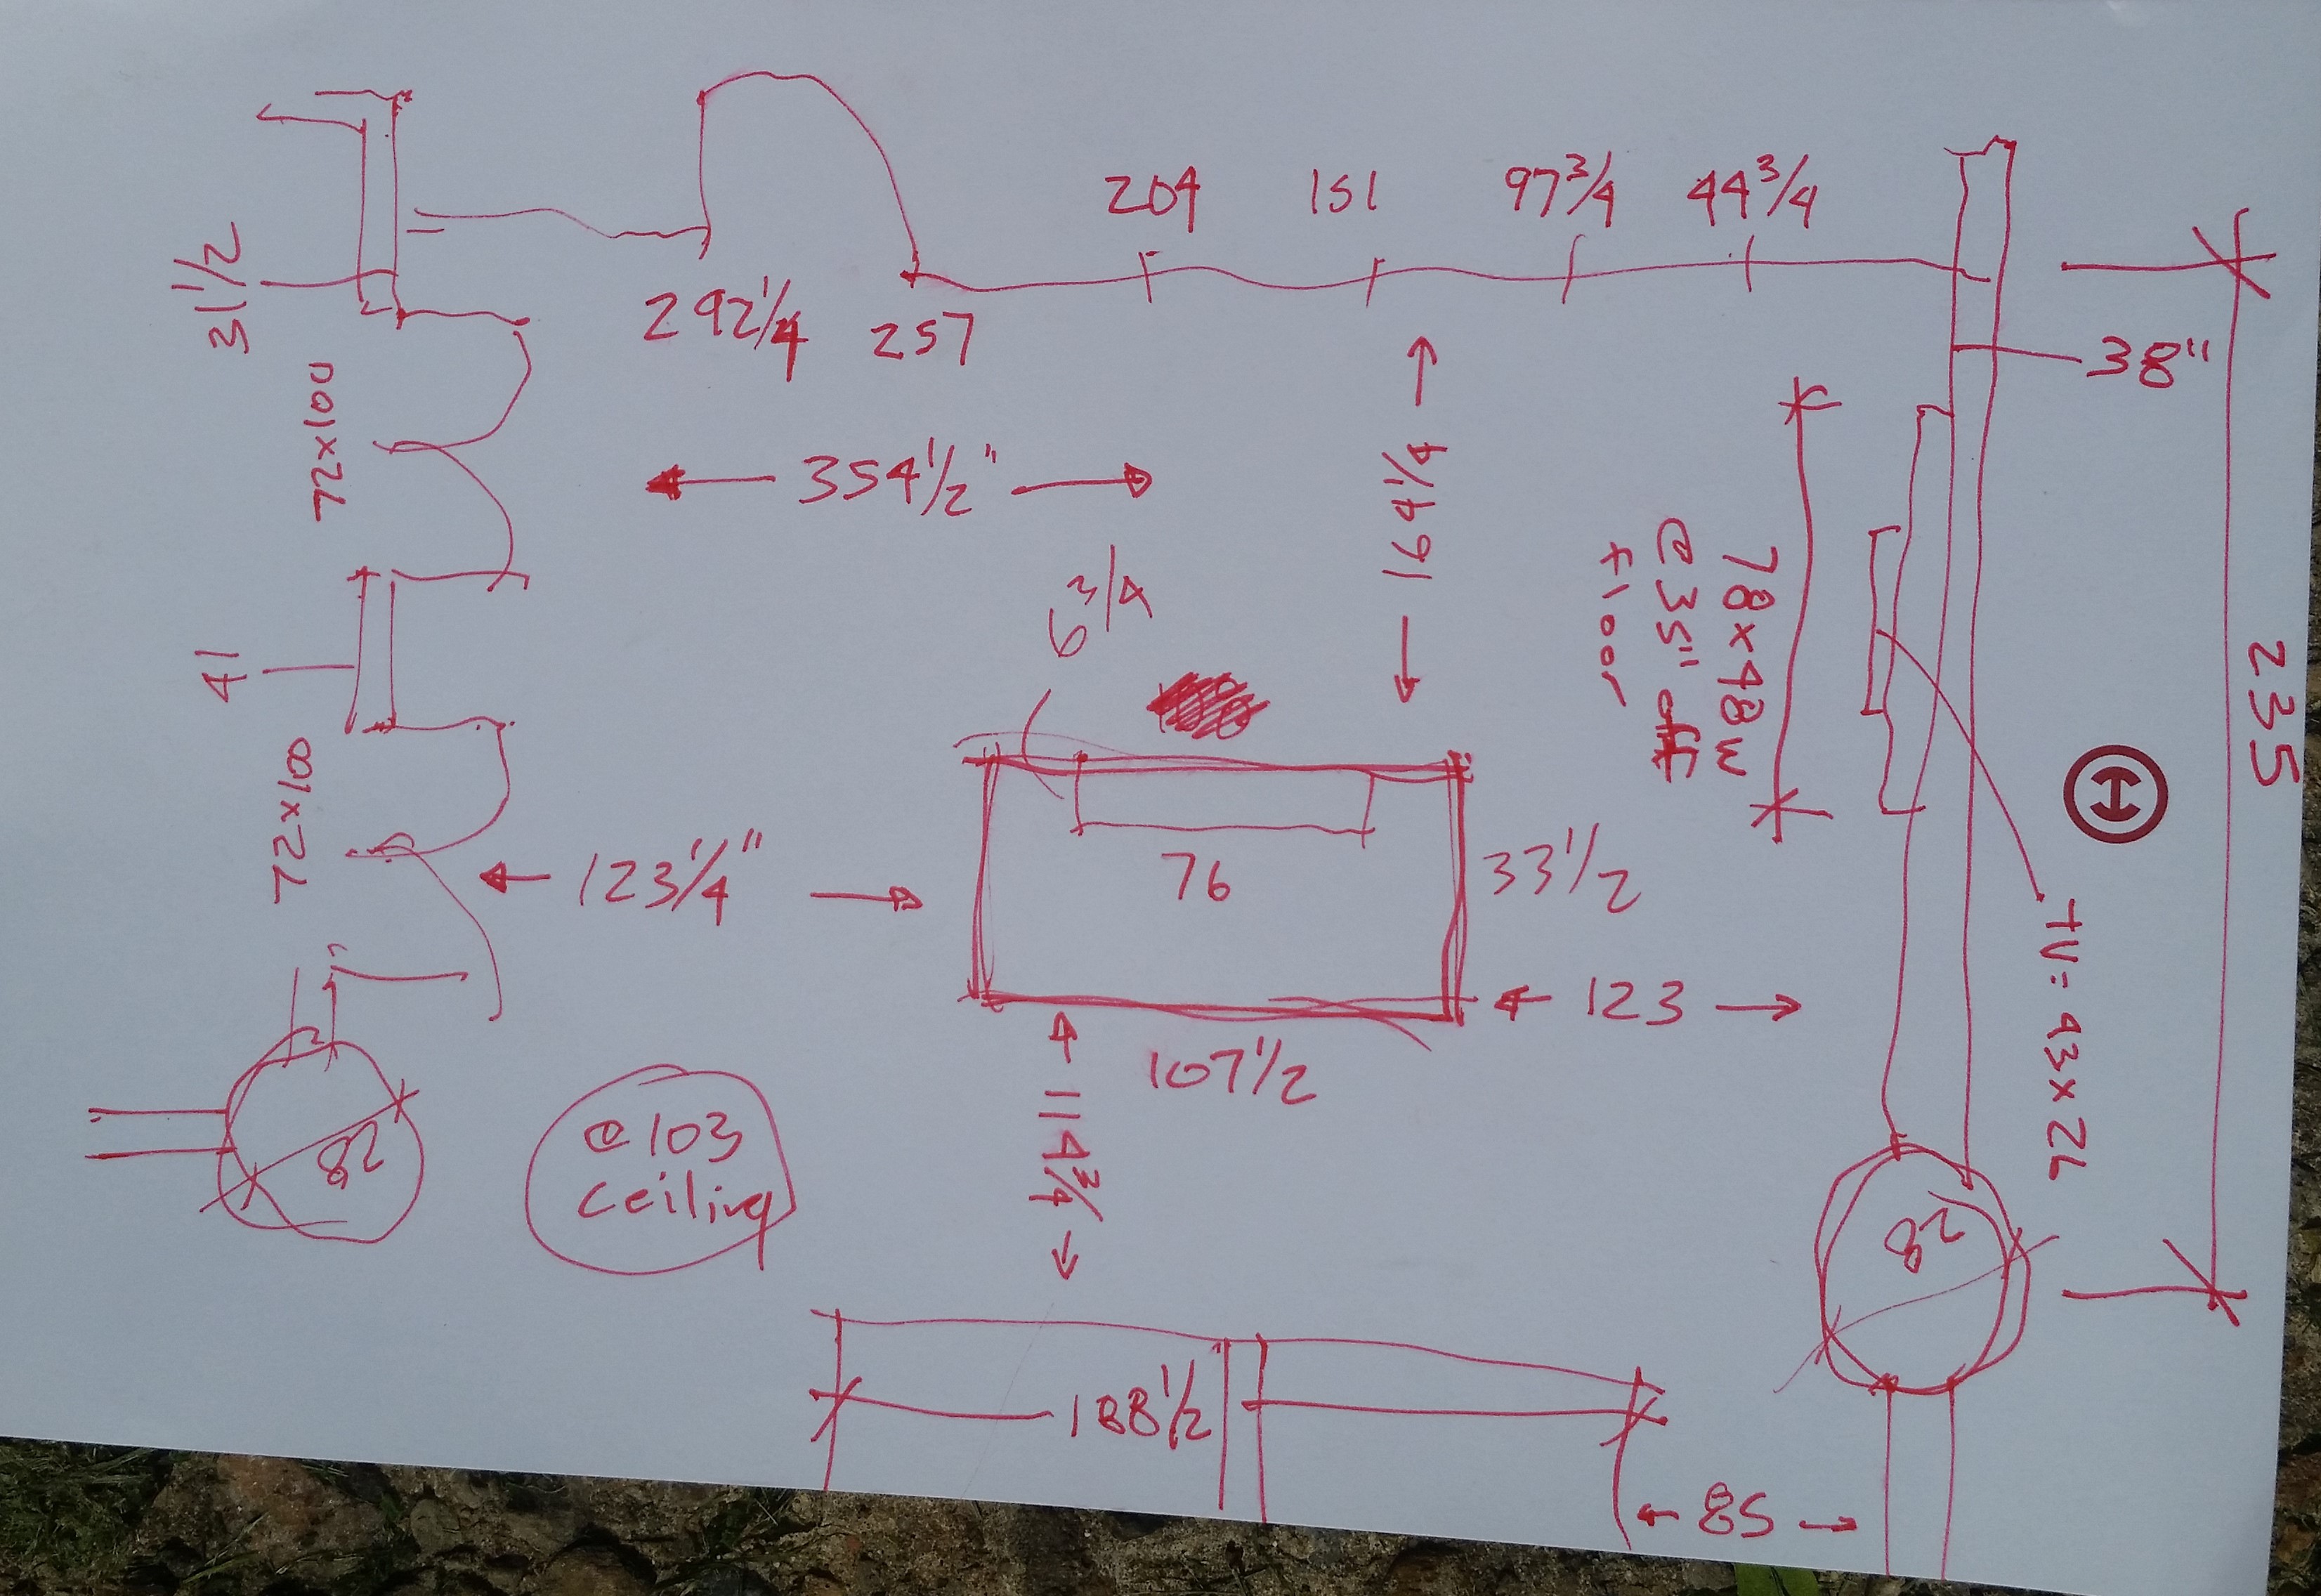 204
151
97 3/4
44 3/4
31 1/2
292 1/4
257
38"
72x100
354 1/2"
164 1/4
78x48w
@35" off
floor
6 3/4
41
235
72x100
123 1/4"
76
33 1/2
TV=43x26
123
107 1/2
@103
ceiling
28
114 3/4
28
188 1/2
85